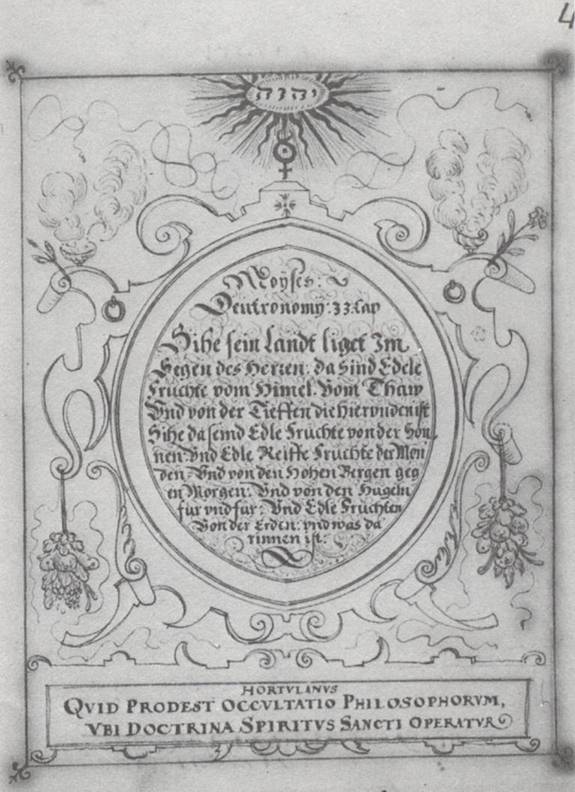 4
יהוה
Moyses:
Deutronomy: 33. Cap
Sihe sein Landt liget Im
Segen des Herren. da Sind Edele
Fruchte vom Himel. Vom Thaw
Vnd von der Tieffen die hierunden ist
Sihe da seind Edle Fruchte von der Son
nen. Vnd Edle Reiffe Fruchte der Mon
den. Vnd von den Hohen Bergen geg
en Morgen. Vnd von den Hugeln
fur vnd fur: Vnd Edle Fruchten
Von der Erden. vnd was da
rinnen ist.
HORTVLANVS
QVID PRODEST OCCVLTATIO PHILOSOPHORVM,
VBI DOCTRINA SPIRITVS SANCTI OPERATVR